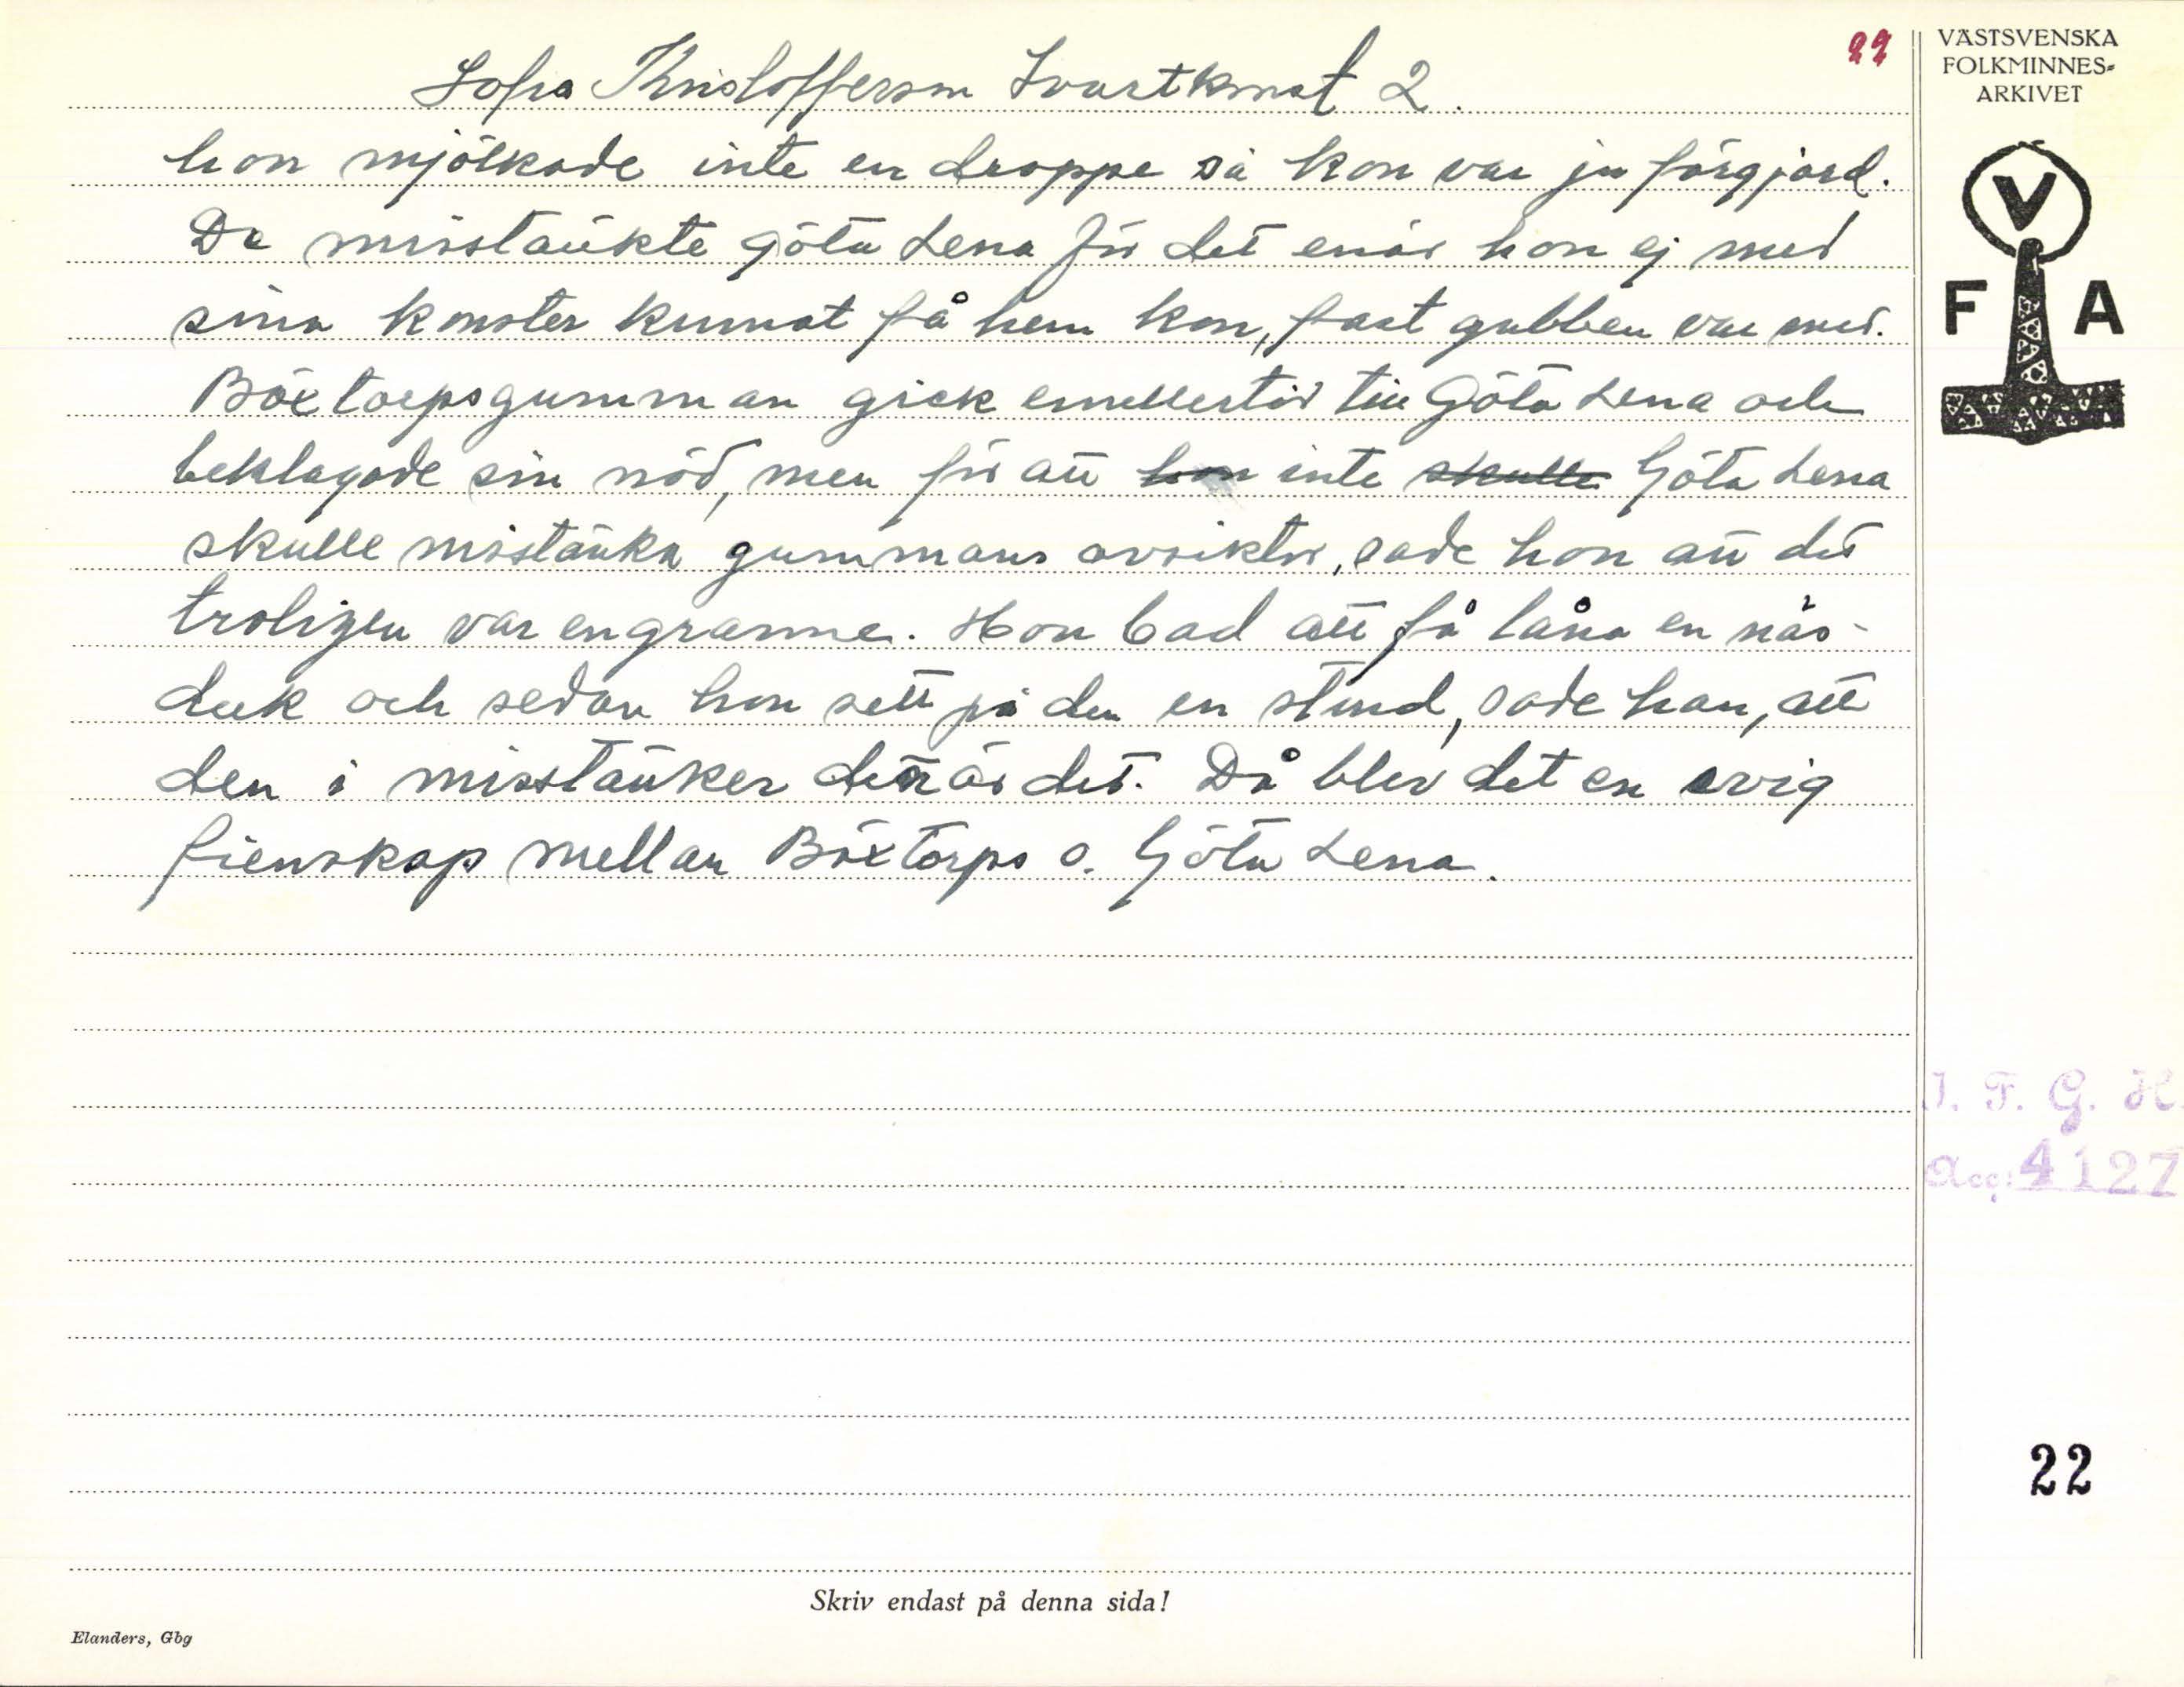 Sofia Kristofferson Svartkonst 2.
22
VÄSTSVENSKA
FOLKMINNES-
ARKIVET
V
F A
hon mjölkade inte en droppe så kon var ju förgjord.
De misstänkte Göta Lena för det enär hon ej med
sina konster kunnat få hem kon, fast gubben var med.
Böxtorpsgumman gick emellertid till Göta Lena och
beklagade sin nöd, men för att hon inte skulle Göta Lena
skulle misstänka gummans avsikter, sade hon att det
troligen var en granne. Hon bad att få låna en näs-
duk och sedan hon sett på den en stund, sade han, att
den i misstänker den är det. Då blev det en evig
fienskap mellan Böxtorps o. Göta Lena.
I. F. G. H.
Acc: 4127
22
Skriv endast på denna sida!
Elanders, Gbg